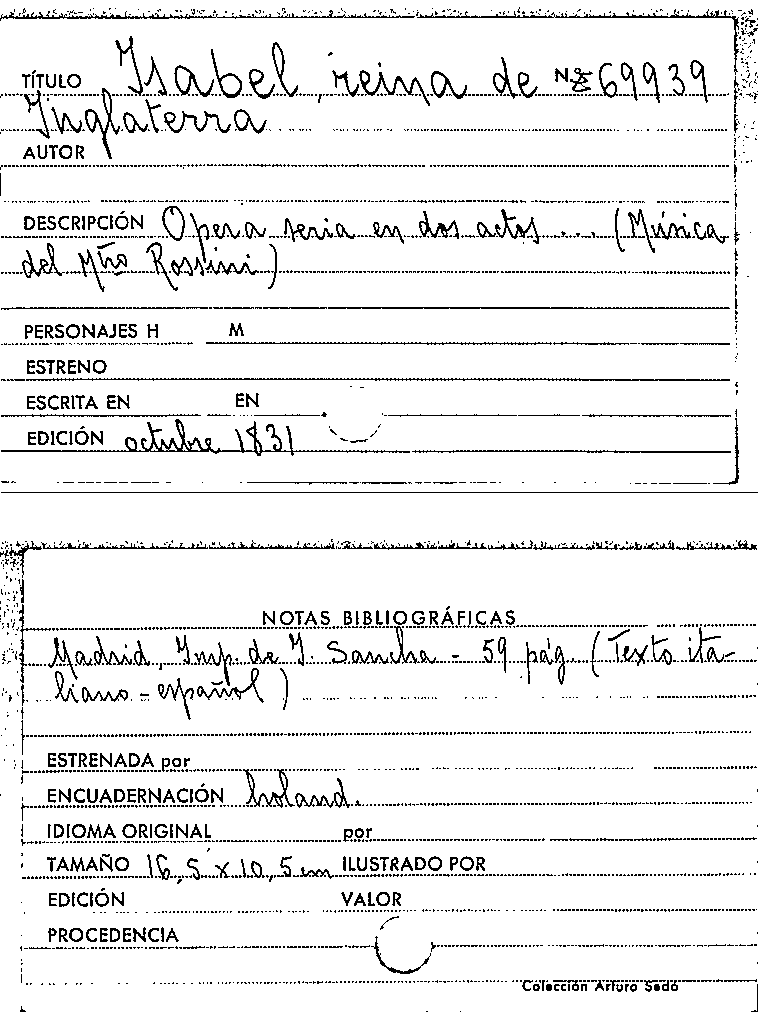 TÍTULO Isabel, reina de Nº 69939
Inglaterra
AUTOR
DESCRIPCIÓN Opera seria en dos actos... (Música
del Mtro Rossini)
PERSONAJES H M
ESTRENO
ESCRITA EN EN
EDICIÓN octubre 1831
NOTAS BIBLIOGRÁFICAS
Madrid, Imp. de I. Sancha - 59 pág. (Texto ita-
liano-español)
ESTRENADA por
ENCUADERNACIÓN holand.
IDIOMA ORIGINAL por
TAMAÑO 16,5 x 10,5 cm ILUSTRADO POR
EDICIÓN VALOR
PROCEDENCIA
Colección Arturo Sedó